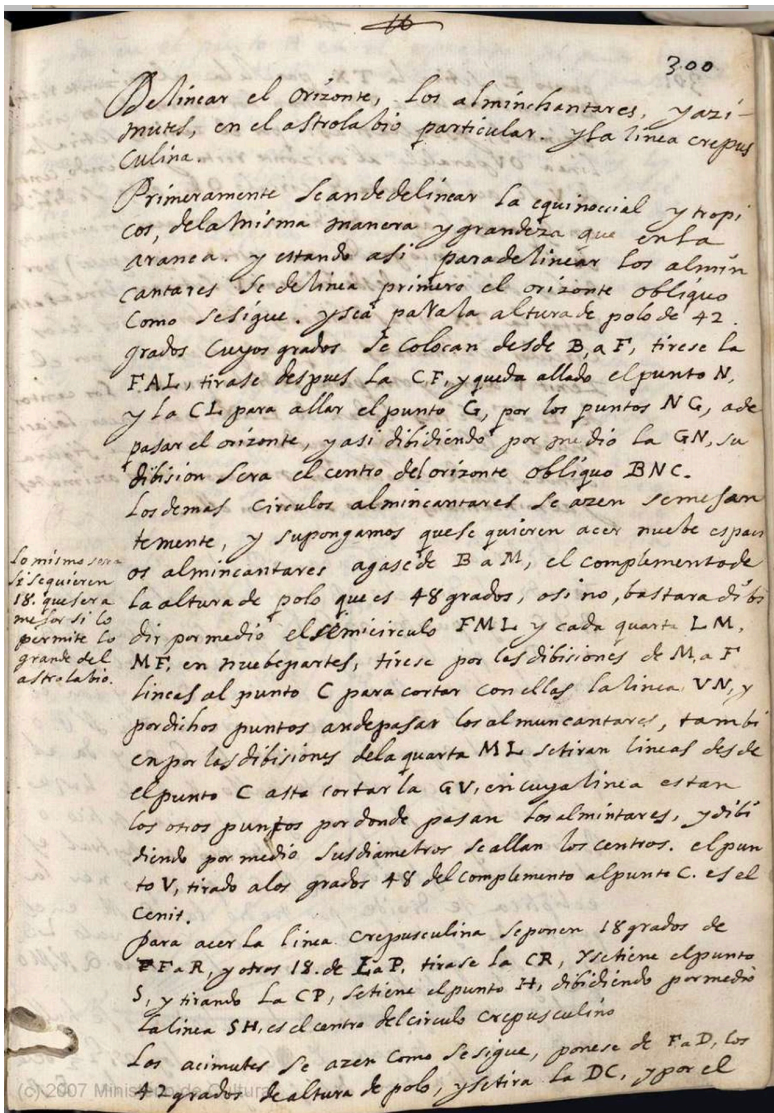 300
Delinear el orizonte, los alminchantares, y azi-
mutes, en el astrolabio particular. y la linea crepus
culina.
Primeramente se an de delinear la equinoccial y tropi
cos, de la misma manera y grandeza que en la
aranea. y estando asi para delinear los almin
cantares se delinea primero el orizonte obliquo
como se sigue. y sea para la altura de polo de 42
grados cuyos grados se colocan desde B, a F, tirese la
FAL, tirase despues la CF, y queda allado el punto N,
y la CL para allar el punto G, por los puntos NG, a de
pasar el orizonte, y asi dibidiendo por medio la GN, su
dibision sera el centro del orizonte obliquo BNC.
Los demas circulos almincantares se azen semejan
temente, y supongamos que se quieren acer nuebe espaci
os almincantares agase de B a M, el complemento de
la altura de polo que es 48 grados, o si no, bastara dibi
dir por medio el semicirculo FML y cada quarta LM,
MF, en nuebe partes, tirese por las dibisiones de M, a F
lineas al punto C para cortar con ellas la linea VN, y
por dichos puntos an de pasar los almuncantares, tambi
en por las dibisiones de la quarta ML se tiran lineas desde
el punto C asta cortar la GV, en cuya linea estan
los otros puntos por donde pasan los almintares, y dibi
diendo por medio sus diametros se allan los centros. el pun
to V, tirado a los grados 48 del complemento al punto C. es el
cenit.
Lo mismo sera
si se quieren
18. que sera
mejor si lo
permite lo
grande del
astrolabio.
para acer la linea crepusculina se ponen 18 grados de
F a R, y otros 18. de L a P, tirase la CR, y se tiene el punto
S, y tirando la CP, se tiene el punto H, dibidiendo por medio
la linea SH, es el centro del circulo crepusculino
Los acimutes se azen como se sigue, ponese de F a D, los
42 grados de altura de polo, y se tira la DC, y por el
(c) 2007 Ministerio de Cultura